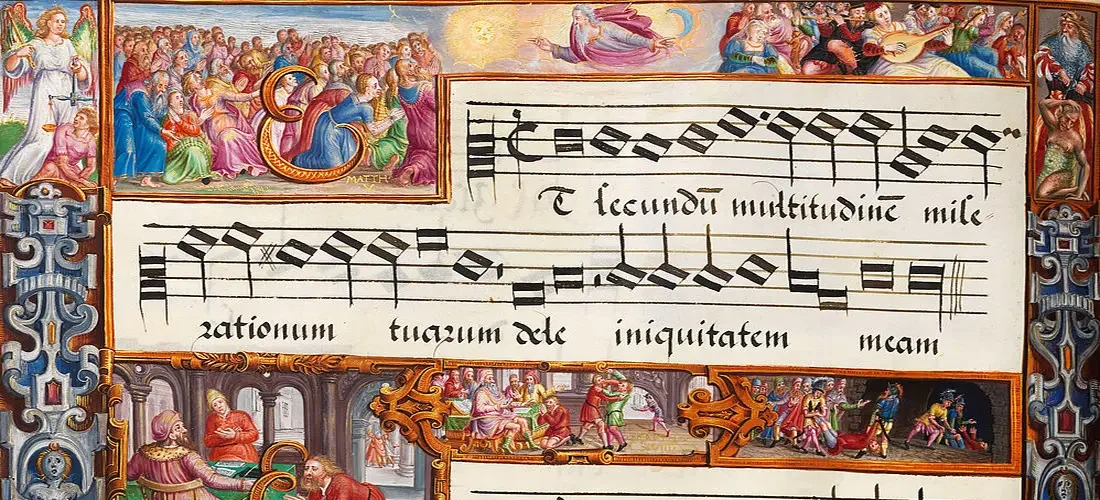 MATTH
V
Et secundū multitudinē mise=
rationum tuarum dele iniquitatem meam